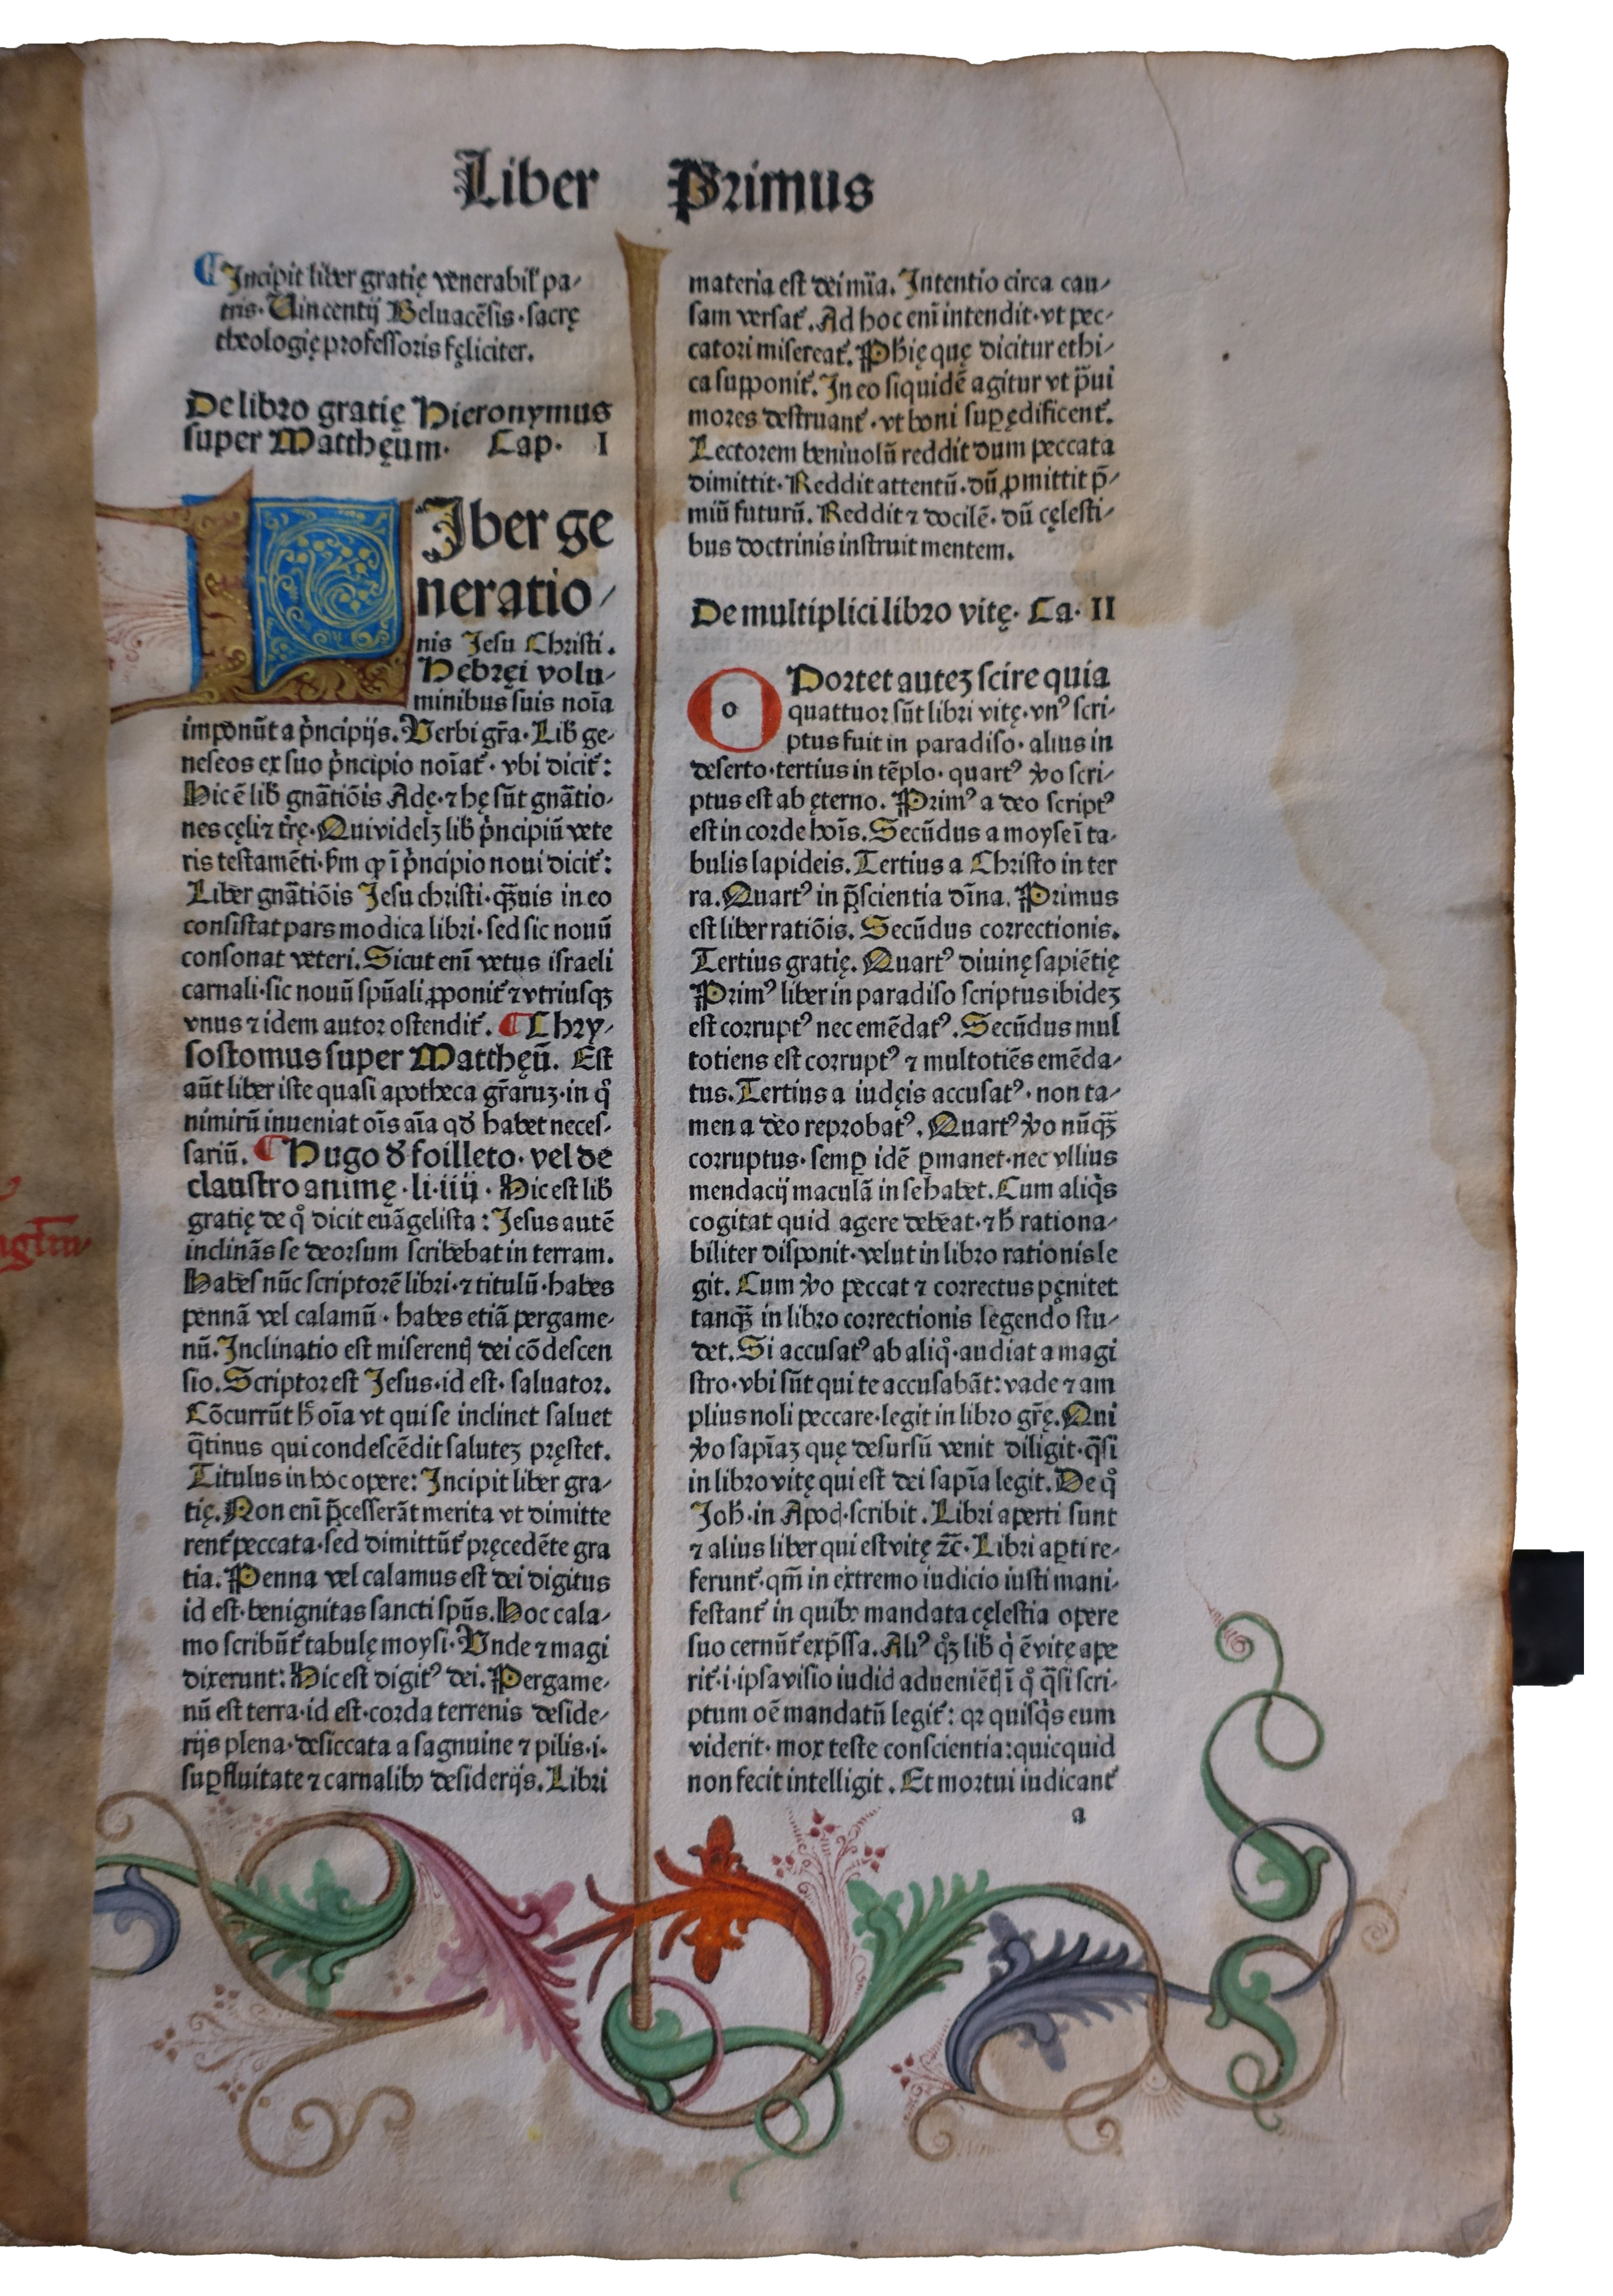 Liber Primus
¶ Incipit liber gratię venerabilꝭ pa⸗
tris· Uincentij Beluacẽsis· sacrę
theologię professoris fęliciter.
De libro gratię Hieronymus
super Matthęum· Cap· I
LIber ge
neratio⸗
nis Jesu Christi.
Hebręi volu⸗
minibus suis noĩa
imponũt a pͥncipijs. Verbi gr̃a· Lib̃ ge⸗
neseos ex suo pͥncipio noĩat᷑· vbi dicit᷑:
Hic ẽ lib̃ gnãtiõis Adę· ⁊ hę sũt gnãtio⸗
nes cęli ⁊ tr̃ę· Qui videlꝫ lib̃ pͥncipiũ vete
ris testamẽti· ẜm ꝙ ĩ pͥncipio noui dicit᷑:
Liber gnãtiõis Jesu christi· q̃ꝫuis in eo
consistat pars modica libri· sed sic nouũ
consonat veteri. Sicut enĩ vetus israeli
carnali· sic nouũ spũali ꝓponit᷑ ⁊ vtriusqꝫ
vnus ⁊ idem autor ostendit᷑. ¶ Chry⸗
sostomus super Matthęũ. Est
aũt liber iste quasi apotheca gr̃aruꝫ· in qͦ
nimirũ inueniat oĩs aĩa qď habet neces⸗
sariũ. ¶ Hugo ď foilleto· vel de
claustro animę· li· iiij· Hic est lib̃
gratię de qͦ dicit euãgelista: Jesus autẽ
inclinãs se deorsum scribebat in terram.
Habes nũc scriptorẽ libri· ⁊ titulũ· habes
pennã vel calamũ· habes etiã pergame⸗
nũ. Inclinatio est miserentꝭ dei cõdescen
sio. Scriptor est Jesus· id est· saluator.
Cõcurrũt h̃ oĩa vt qui se inclinet saluet
q̃tinus qui condescẽdit saluteꝫ pręstet.
Titulus in hoc opere: Incipit liber gra⸗
tię. Non enĩ p̃cesserãt merita vt dimitte
rent᷑ peccata· sed dimittũt᷑ pręcedẽte gra
tia. Penna vel calamus est dei digitus
id est· benignitas sancti spũs. Hoc cala⸗
mo scribũt᷑ tabulę moysi· Vnde ⁊ magi
dixerunt: Hic est digitꝰ dei. Pergame⸗
nũ est terra· id est· corda terrenis deside⸗
rijs plena· desiccata a sagnuine ⁊ pilis· i·
suꝑfluitate ⁊ carnalibꝰ desiderijs. Libri
materia est dei mĩa. Intentio circa cau⸗
sam versat᷑. Ad hoc enĩ intendit· vt pec⸗
catori misereat᷑. Phię quę dicitur ethi⸗
ca supponit᷑. In eo siquidẽ agitur vt p̃ui
mores destruant᷑· vt boni suꝑędificent᷑.
Lectorem beniuolũ reddit dum peccata
dimittit· Reddit attentũ· dũ ꝓmittit p̃⸗
miũ futurũ. Reddit ⁊ docilẽ· dũ cęlesti⸗
bus doctrinis instruit mentem.
De multiplici libro vitę· Ca· II
OPortet auteꝫ scire quia
quattuor sũt libri vitę· vnꝰ scri⸗
ptus fuit in paradiso· alius in
deserto· tertius in tẽplo· quartꝰ ꝟo scri⸗
ptus est ab ęterno. Primꝰ a deo scriptꝰ
est in corde hoĩs. Secũdus a moyse ĩ ta⸗
bulis lapideis. Tertius a Christo in ter
ra. Quartꝰ in p̃scientia dĩna. Primus
est liber ratiõis. Secũdus correctionis.
Tertius gratię. Quartꝰ diuinę sapiẽtię
Primꝰ liber in paradiso scriptus ibideꝫ
est corruptꝰ nec emẽdatꝰ. Secũdus mul
totiens est corruptꝰ ⁊ multotiẽs emẽda⸗
tus. Tertius a iudęis accusatꝰ· non ta⸗
men a deo reprobatꝰ. Quartꝰ ꝟo nũq̃ꝫ
corruptus· semꝑ idẽ ꝑmanet· nec vllius
mendacij maculã in se habet. Cum aliqͥs
cogitat quid agere debeat· ⁊ h̃ rationa⸗
biliter disponit· velut in libro rationis le
git. Cum ꝟo peccat ⁊ correctus pęnitet
tanq̃ꝫ in libro correctionis legendo stu⸗
det. Si accusatꝰ ab aliqͦ· audiat a magi
stro· vbi sũt qui te accusabãt: vade ⁊ am
plius noli peccare· legit in libro gr̃ę. Qui
ꝟo sapĩaꝫ quę desursũ venit diligit· q̃si
in libro vitę qui est dei sapĩa legit. De qͦ
Joh̃· in Apoc̃· scribit. Libri aperti sunt
⁊ alius liber qui est vitę ⁊c̃· Libri aꝑti re⸗
ferunt᷑· qm̃ in extremo iudicio iusti mani⸗
festant᷑ in quibꝰ mandata cęlestia opere
suo cernũt᷑ exp̃ssa. Aliꝰ qͦꝫ lib̃ qͥ ẽ vitę ape
rit᷑· i· ipsa visio iudicĩ adueniẽtꝭ ĩ qͦ q̃si scri⸗
ptum oẽ mandatũ legit᷑: qꝛ quisqͥs eum
viderit· mox teste conscientia: quicquid
non fecit intelligit. Et mortui iudicant᷑
a